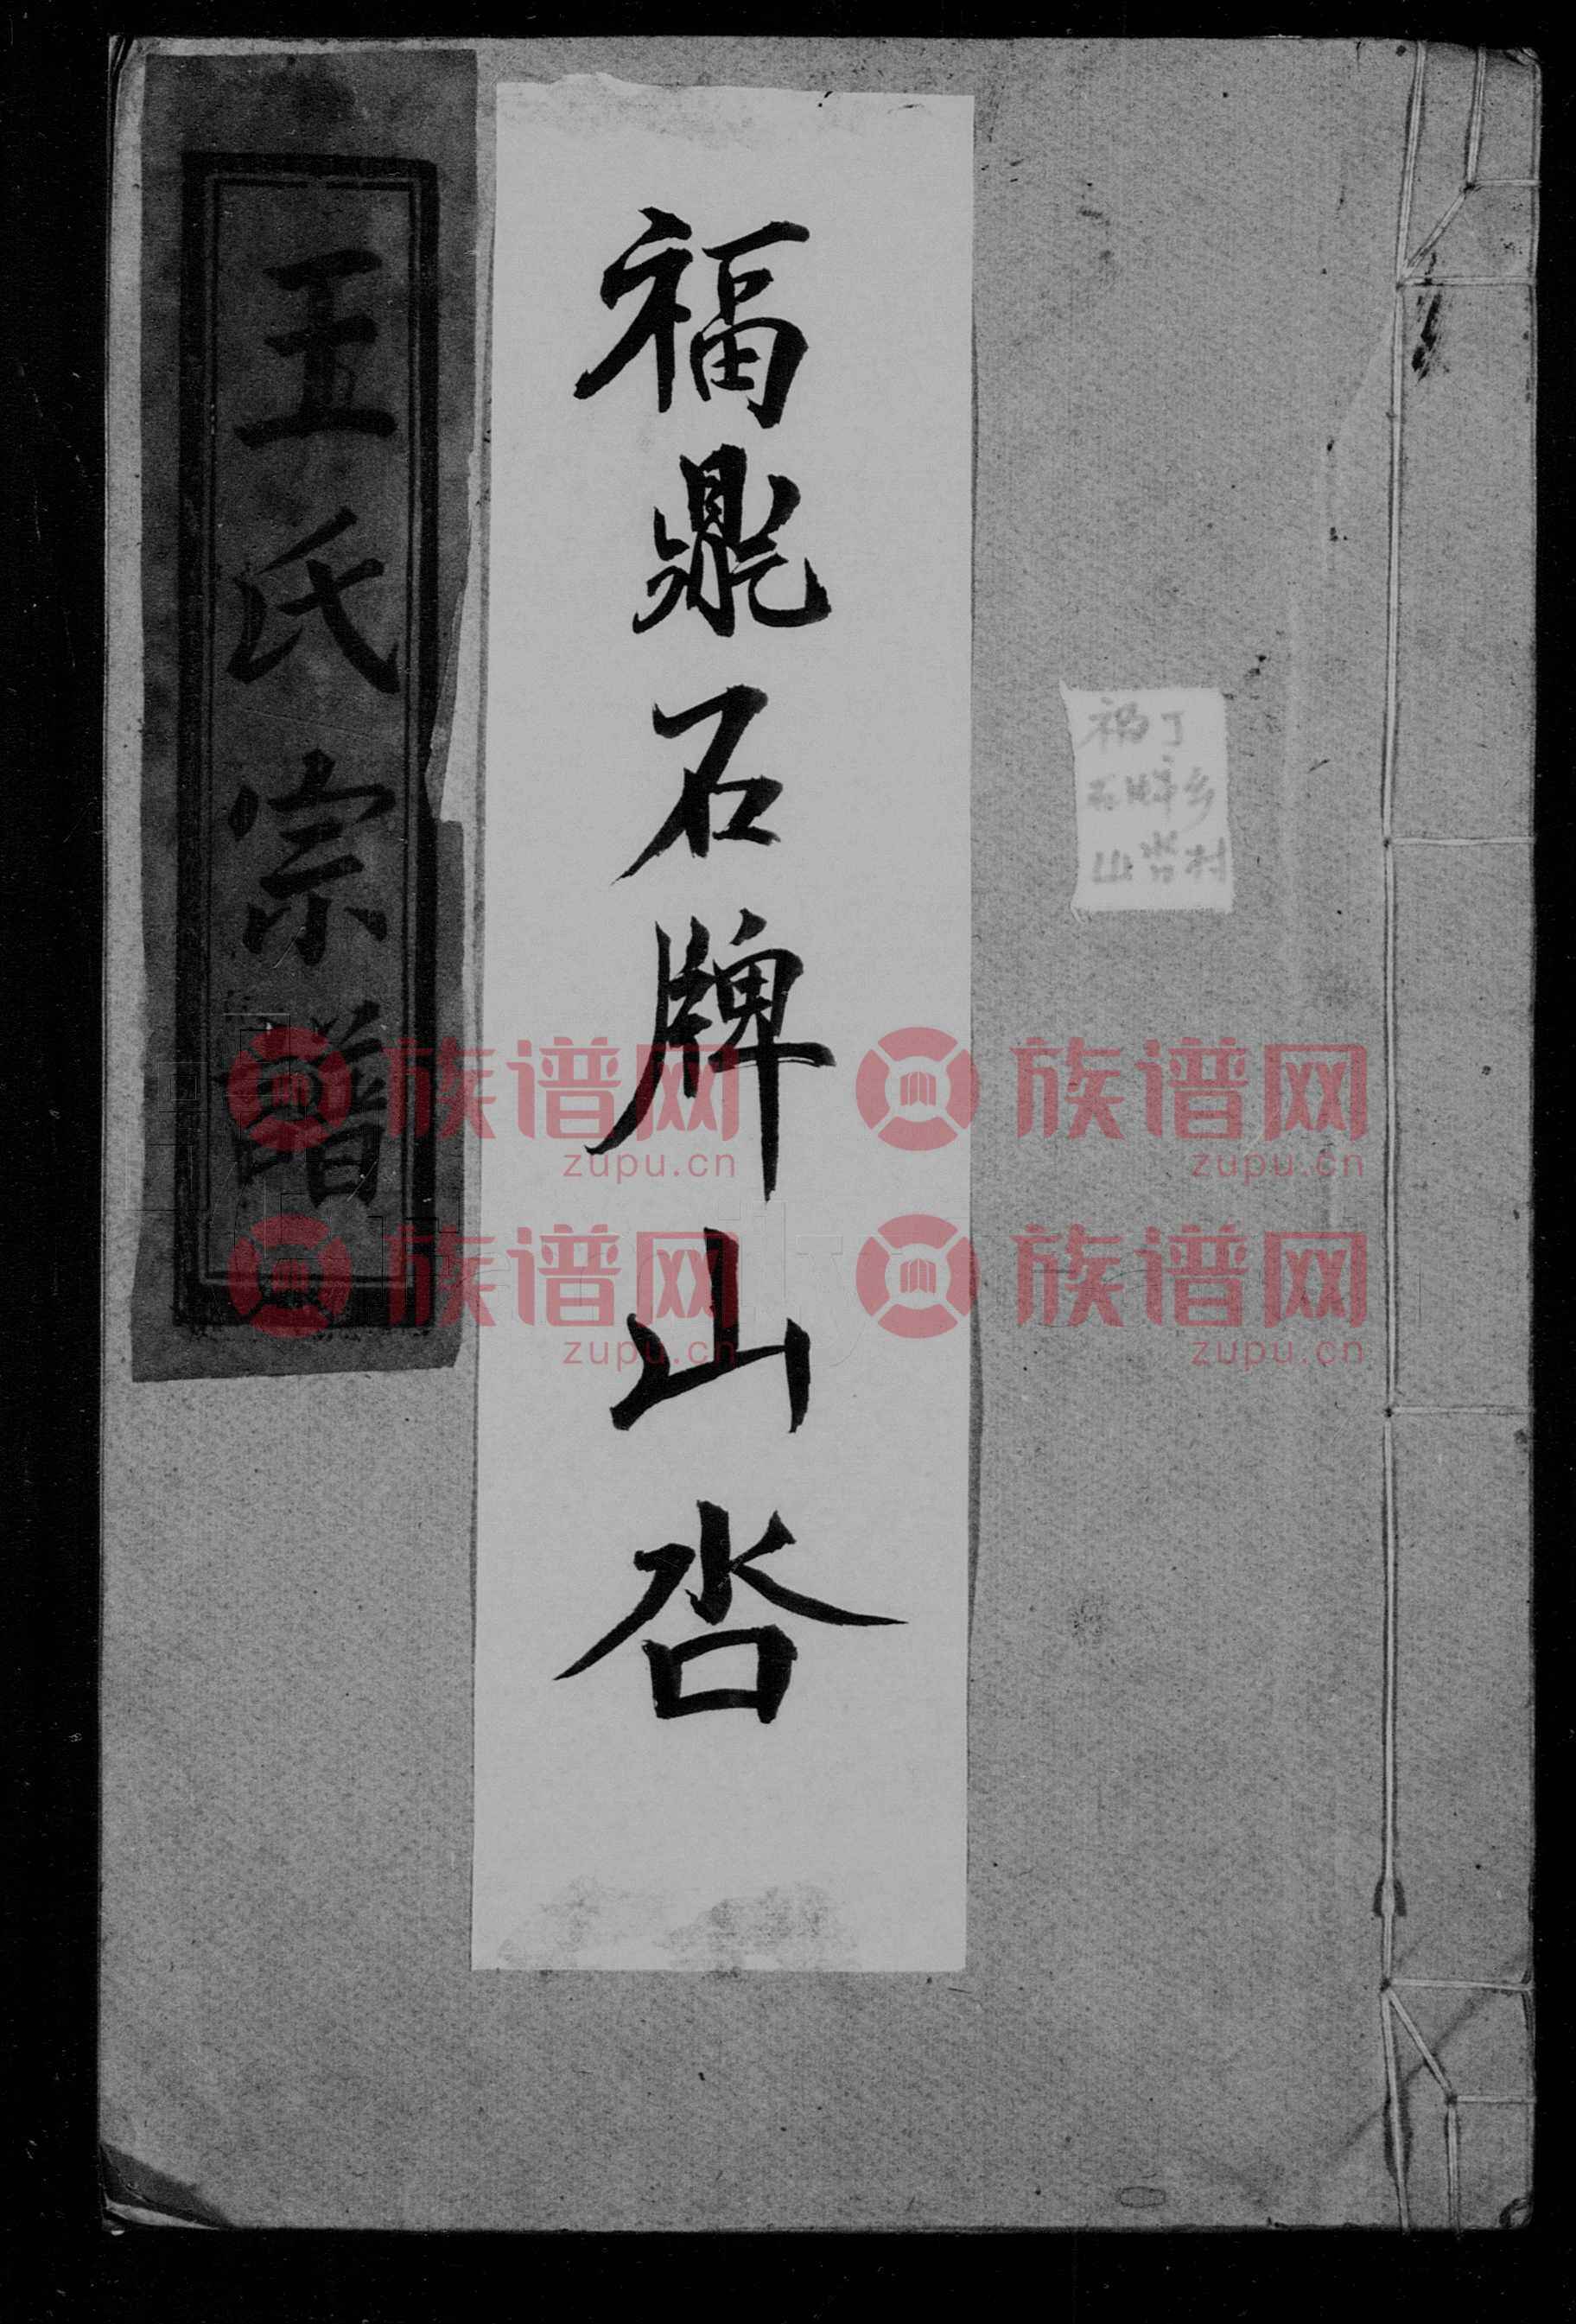 福丁
石牌乡
山沓村
福鼎石牌山沓
王氏宗譜
族谱网 族谱网
zupu.cn zupu.cn
族谱网 族谱网
zupu.cn zupu.cn